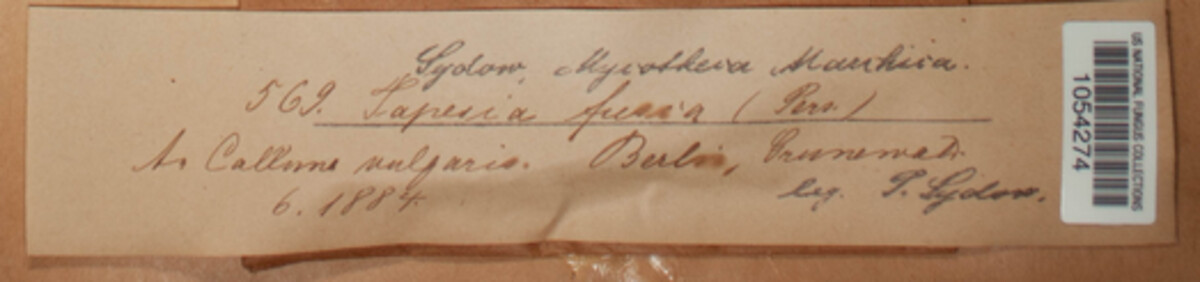 Sydow, Mycotheca Marchica.
569. Tapesia fusca (Pers.)
A. Calluna vulgaris. Berlin, Grunewald.
6. 1884.
leg. P. Sydow.
US NATIONAL FUNGUS COLLECTIONS
1054274